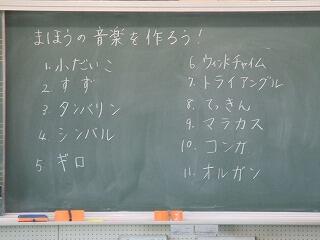 まほうの音楽を作ろう!
1. 小だいこ
2. すず
3. タンバリン
4. シンバル
5. ギロ
6. ウィンドチャイム
7. トライアングル
8. てっきん
9. マラカス
10. コンガ
11. オルガン